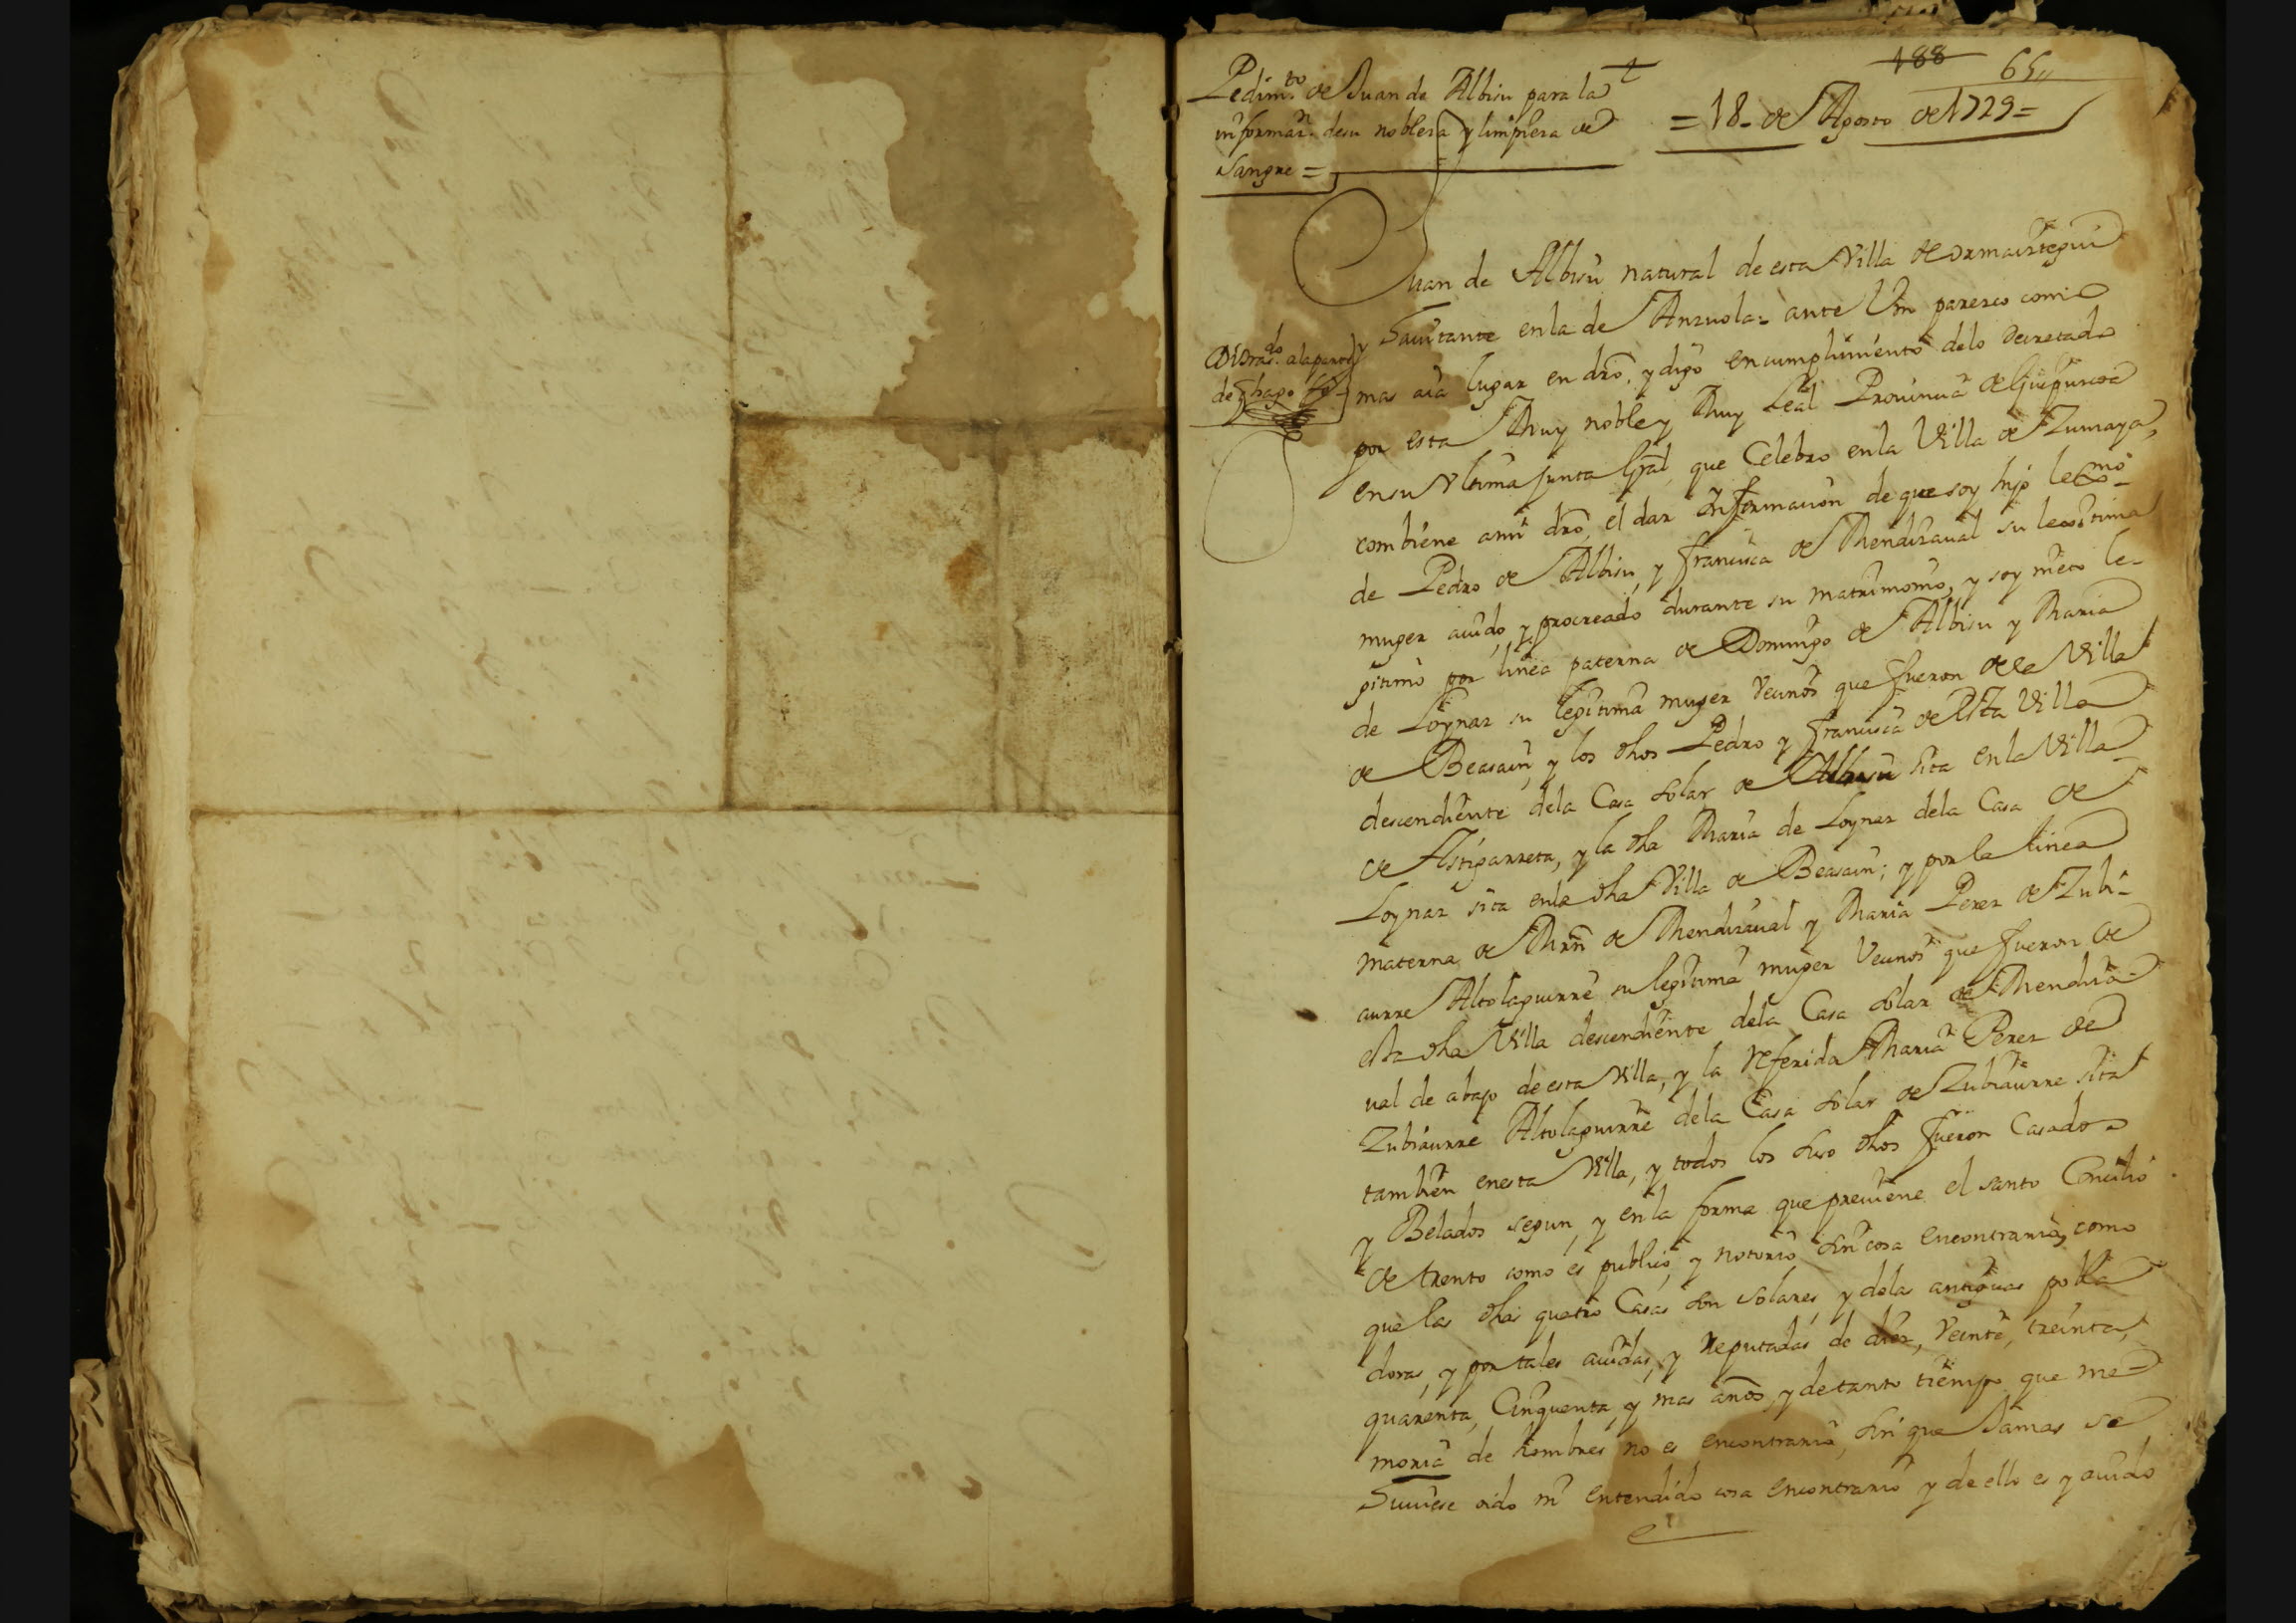 188
65
Pedimto de Juan de Albisu para la
informazn. desu nobleza y limpieza de
sangre =
= 18 - de Agosto de 1729 =
Juan de Albisu natural de esta Villa de ormaiztegui
y havitante enla de Anzuola = ante Vm parezco como
mas aia lugar en dro, y digo en cumplimiento delo decretado
por esta Muy noble y Muy Leal Provincia de Guipuzcoa
ensu Vltima junta Gral, que Celebro enla Villa de Zumaya,
combiene ami dro, el dar Informacion de que soy hijo lexmo
de Pedro de Albisu, y francisca de Mendizaual su lexitima
muger auido, y procreado durante su matrimonio, y soy nieto le-
gitimo por linea paterna de Domingo de Albisu y Maria
de Loynaz su legitima muger Vecinos que fueron de la Villa
de Beasain, y los dhos Pedro y francisca de esta Villa
descendiente dela Casa solar de Albisu sita enla Villa
de Astigarreta, y la dha Maria de Loynaz dela Casa de
Loynaz sita enla dha Villa de Beasain; y por la linea
materna, de Mrn de Mendizaual y Maria Perez de Zubi-
aurre Altolaguirre su legitima muger Vecinos que fueron de
esta dha Villa descendiente dela Casa solar de Mendiza-
ual de abajo de esta Villa, y la referida Maria Perez de
Zubiaurre Altolaguirre dela Casa solar de Zubiaurre sita
tambien enesta Villa, y todos los suso dhos fueron Casados
y Belados segun, y enla forma que preuiene el santo Concilio
de trento como es publico, y notorio sin cosa encontrario, como
que las dhas quatro Casas son solares, y delas antiguas pobla
doras, y por tales auidas, y Reputadas de diez, Veinte, treinta,
quarenta, Cinquenta, y mas años, y de tanto tiempo que me-
moria de hombres no es encontrario, sin que Jamas se
huuiese oido ni entendido cosa encontrario y de ello es y auido